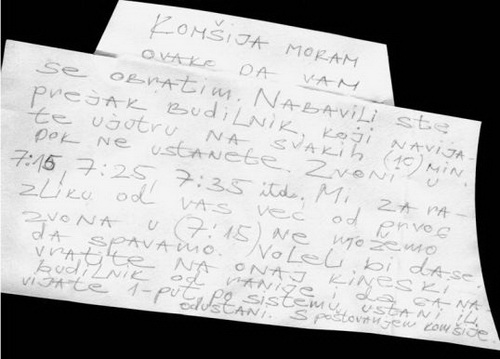 KOMŠIJA MORAM
OVAKO DA VAM
se OBRATIM. NABAVILI ste
PREJAK BUDILNIK, KOJI NAVIJA-
te UJUTRU NA SVAKIH (10) MIN.
DOK NE USTANETE. ZVONI U
7:15, 7:25, 7:35 itd. MI, ZA RA-
ZLIKU OD VAS VEĆ OD PRVOG
ZVONA U (7:15) NE MOŽEMO
DA SPAVAMO. VOLELI BI DA SE
VRATITE NA ONAJ KINESKI
BUDILNIK OD RANIJE DA GA NA-
VIJATE 1-PUT PO SISTEMU USTANI ILI
ODUSTANI. S POŠTOVANJEM KOMŠIJE.